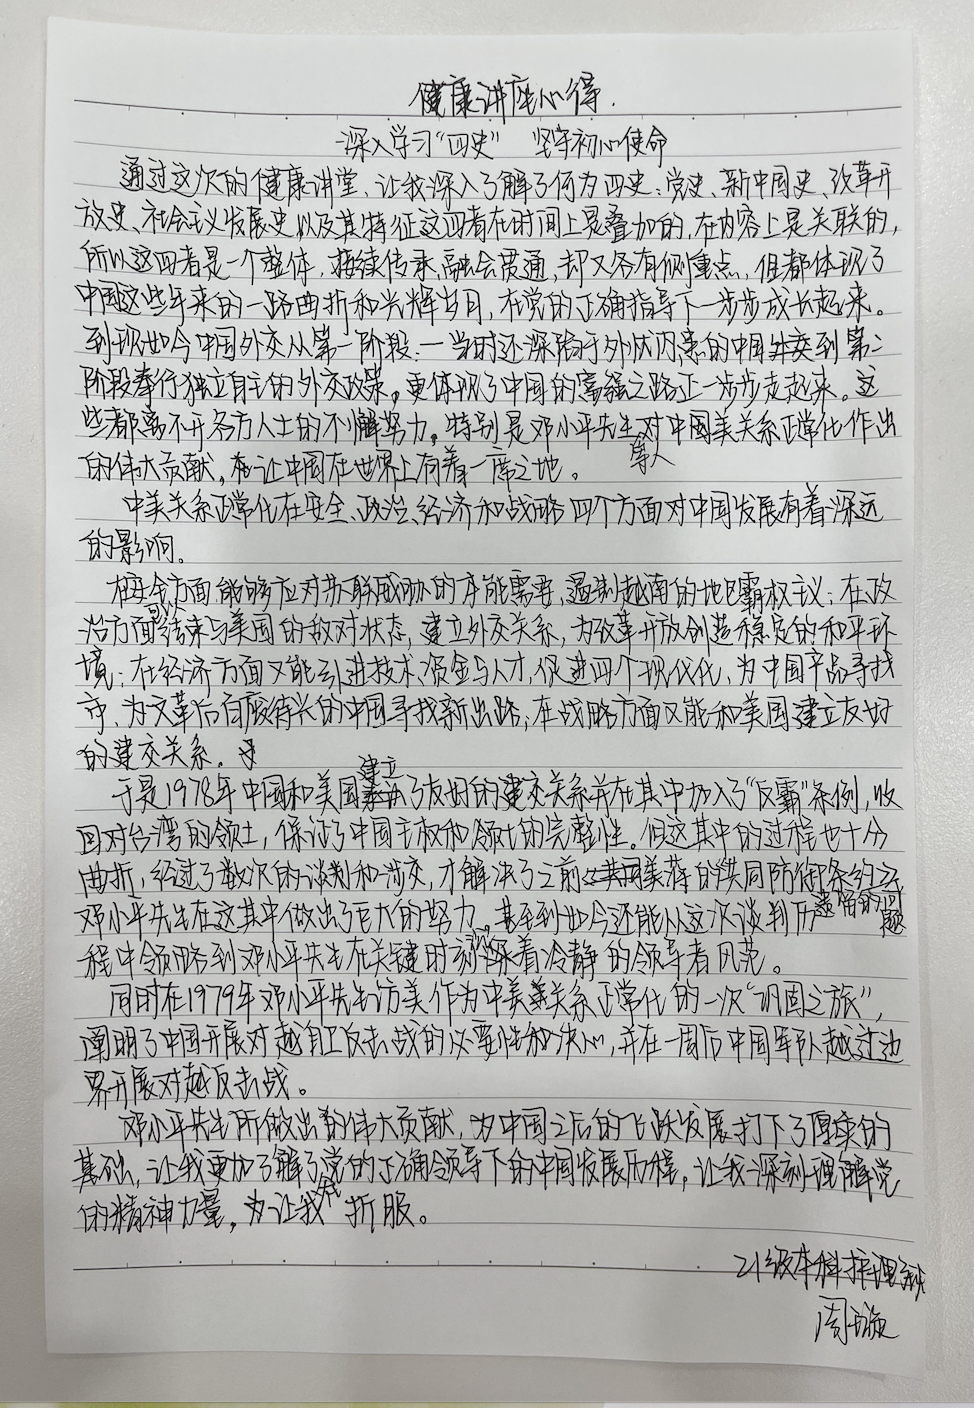 健康讲座心得.
深入学习“四史” 坚守初心使命
通过这次的健康讲堂,让我深入了解了何为四史:党史、新中国史、改革开
放史、社会主义发展史以及其特征这四者在时间上是叠加的,在内容上是关联的,
所以这四者是一个整体,接续传承,融会贯通,却又各有侧重点,但都体现了
中国这些年来的一路曲折和光辉岁月,在党的正确指导下一步步成长起来。
到现如今中国外交从第一阶段:一当时还深陷于外忧内患的中国转变到第二
阶段奉行独立自主的外交政策,更体现了中国的富强之路正一步步走起来。这
些都离不开各方人士的不懈努力。特别是邓小平先生等人对中美关系正常化作出
的伟大贡献,才让中国在世界上有着一席之地。
中美关系正常化在安全、政治、经济和战略四个方面对中国发展有着深远
的影响。
在安全方面能够应对苏联威胁的存能需要,遏制越南的地区霸权主议;在政
治方面可以结束与美国的敌对状态,建立外交关系,为改革开放创造稳定的和平环
境;在经济方面又能引进技术、资金与人才,促进四个现代化,为中国产品寻找
市、为文革后百废待兴的中国寻找新出路;在战略方面又能和美国建立友好
的建交关系。
于是1978年中国和美国建立了友好的建交关系并在其中加入了“反霸”条例,收
回对台湾的领土,保证了中国主权和领土的完整性。但这其中的过程也十分
曲折,经过了数次的谈判和涉交,才解决了之前美蒋的《共同防御条约》遗留的问题
邓小平先生在这其中做出了巨大的努力。甚至到如今还能从这次谈判历
程中领略到邓小平先生在关键时刻沉着冷静的领导者风范。
同时在1979年邓小平先生访美作为中美关系正常化的一次“巩固之旅”,
阐明了中国开展对越自卫反击战的必要性和决心,并在一周后中国军队越过边
界开展对越反击战。
邓小平先生所做出的伟大贡献,为中国之后的飞跃发展打下了厚实的
基础,让我更加了解了党的正确领导下的中国发展历程,让我深刻理解党
的精神力量,为让我折服。
21级本科护理
周